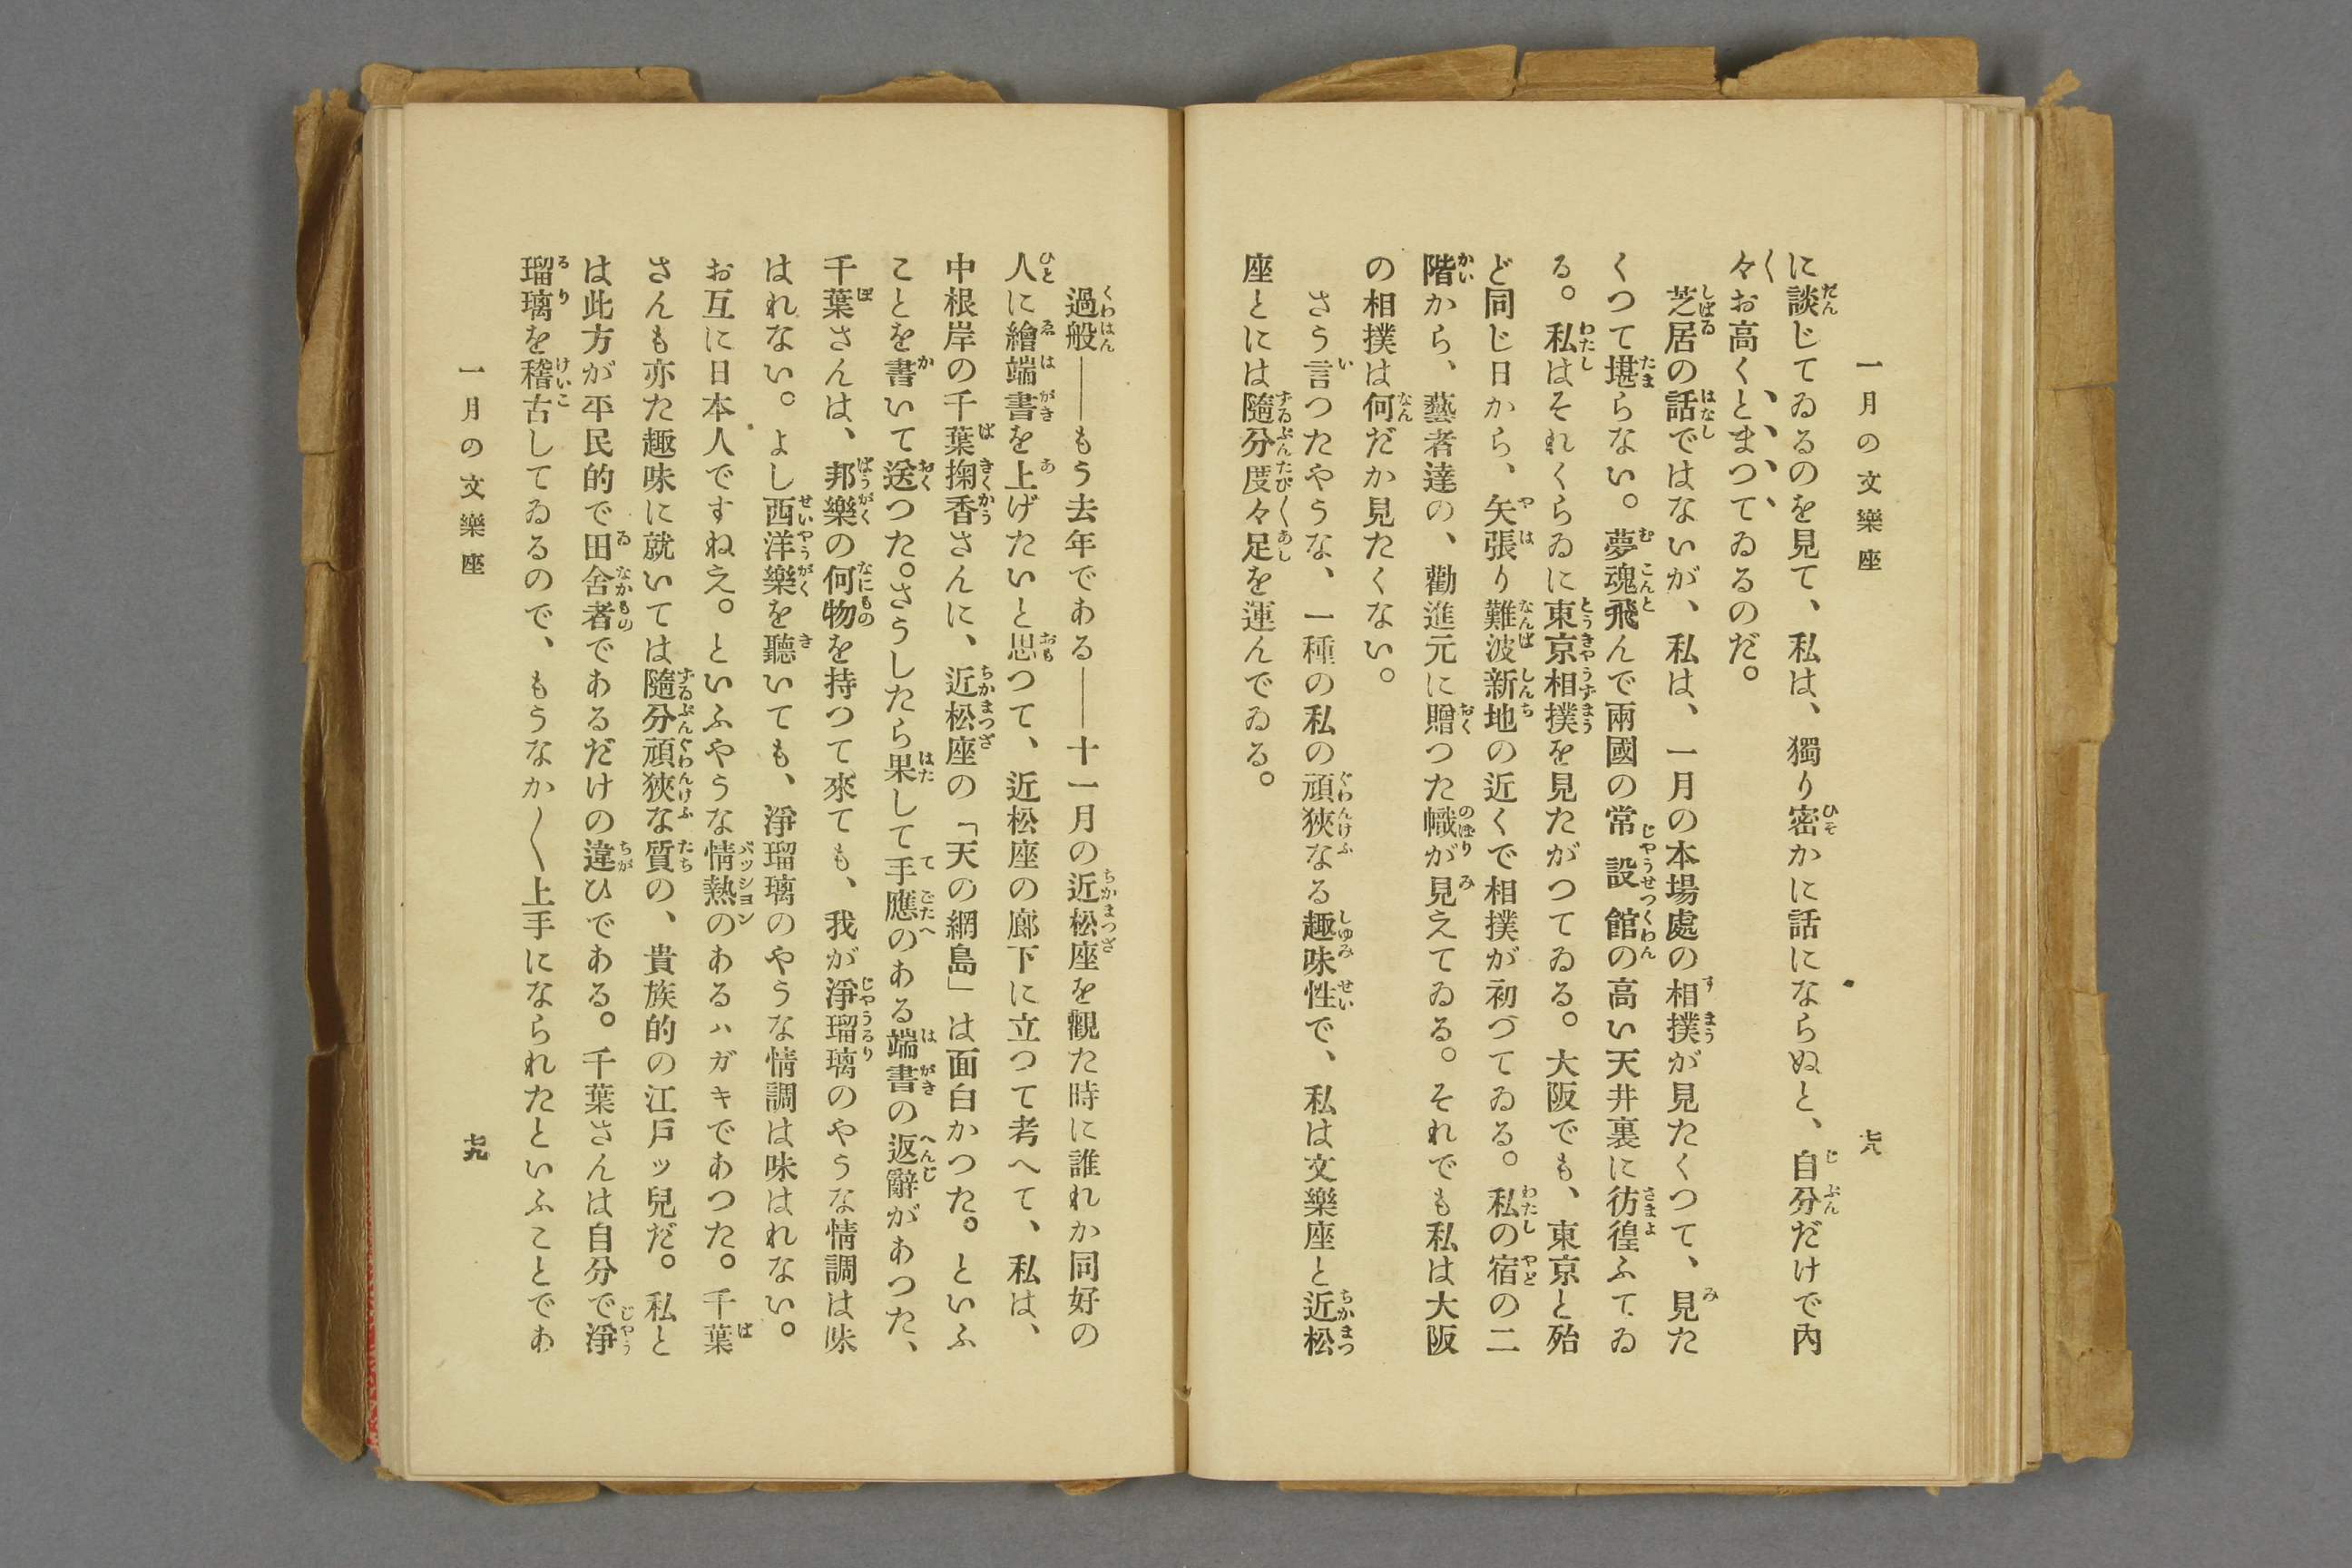 一月の文樂座
七八
に談じてゐるのを見て、私は、獨り密かに話にならぬと、自分だけで內
々お高くとまつてゐるのだ。
芝居の話ではないが、私は、一月の本場處の相撲が見たくつて、見た
くつて堪らない。夢魂飛んで兩國の常設館の高い天井裏に彷徨ふてゐ
る。私はそれくらゐに東京相撲を見たがつてゐる。大阪でも、東京と殆
ど同じ日から、矢張り難波新地の近くで相撲が初づてゐる。私の宿の二
階から、藝者達の、勸進元に贈つた幟が見えてゐる。それでも私は大阪
の相撲は何だか見たくない。
さう言つたやうな、一種の私の頑狹なる趣味性で、私は文樂座と近松
座とには隨分度々足を運んでゐる。
過般――もう去年である――十一月の近松座を觀た時に誰れか同好の
人に繪端書を上げたいと思つて、近松座の廊下に立つて考へて、私は、
中根岸の千葉掬香さんに、近松座の「天の網島」は面白かつた。といふ
ことを書いて送つた。さうしたら果して手應のある端書の返辭があつた、
千葉さんは、邦樂の何物を持つて來ても、我が淨瑠璃のやうな情調は味
はれない。よし西洋樂を聽いても、淨瑠璃のやうな情調は味はれない。
お互に日本人ですねえ。といふやうな情熱のあるハガキであつた。千葉
さんも亦た趣味に就いては隨分頑狹な質の、貴族的の江戶ッ兒だ。私と
は此方が平民的で田舍者であるだけの違ひである。千葉さんは自分で淨
瑠璃を稽古してゐるので、もうなか〱上手になられたといふことであ
一月の文樂座
七九